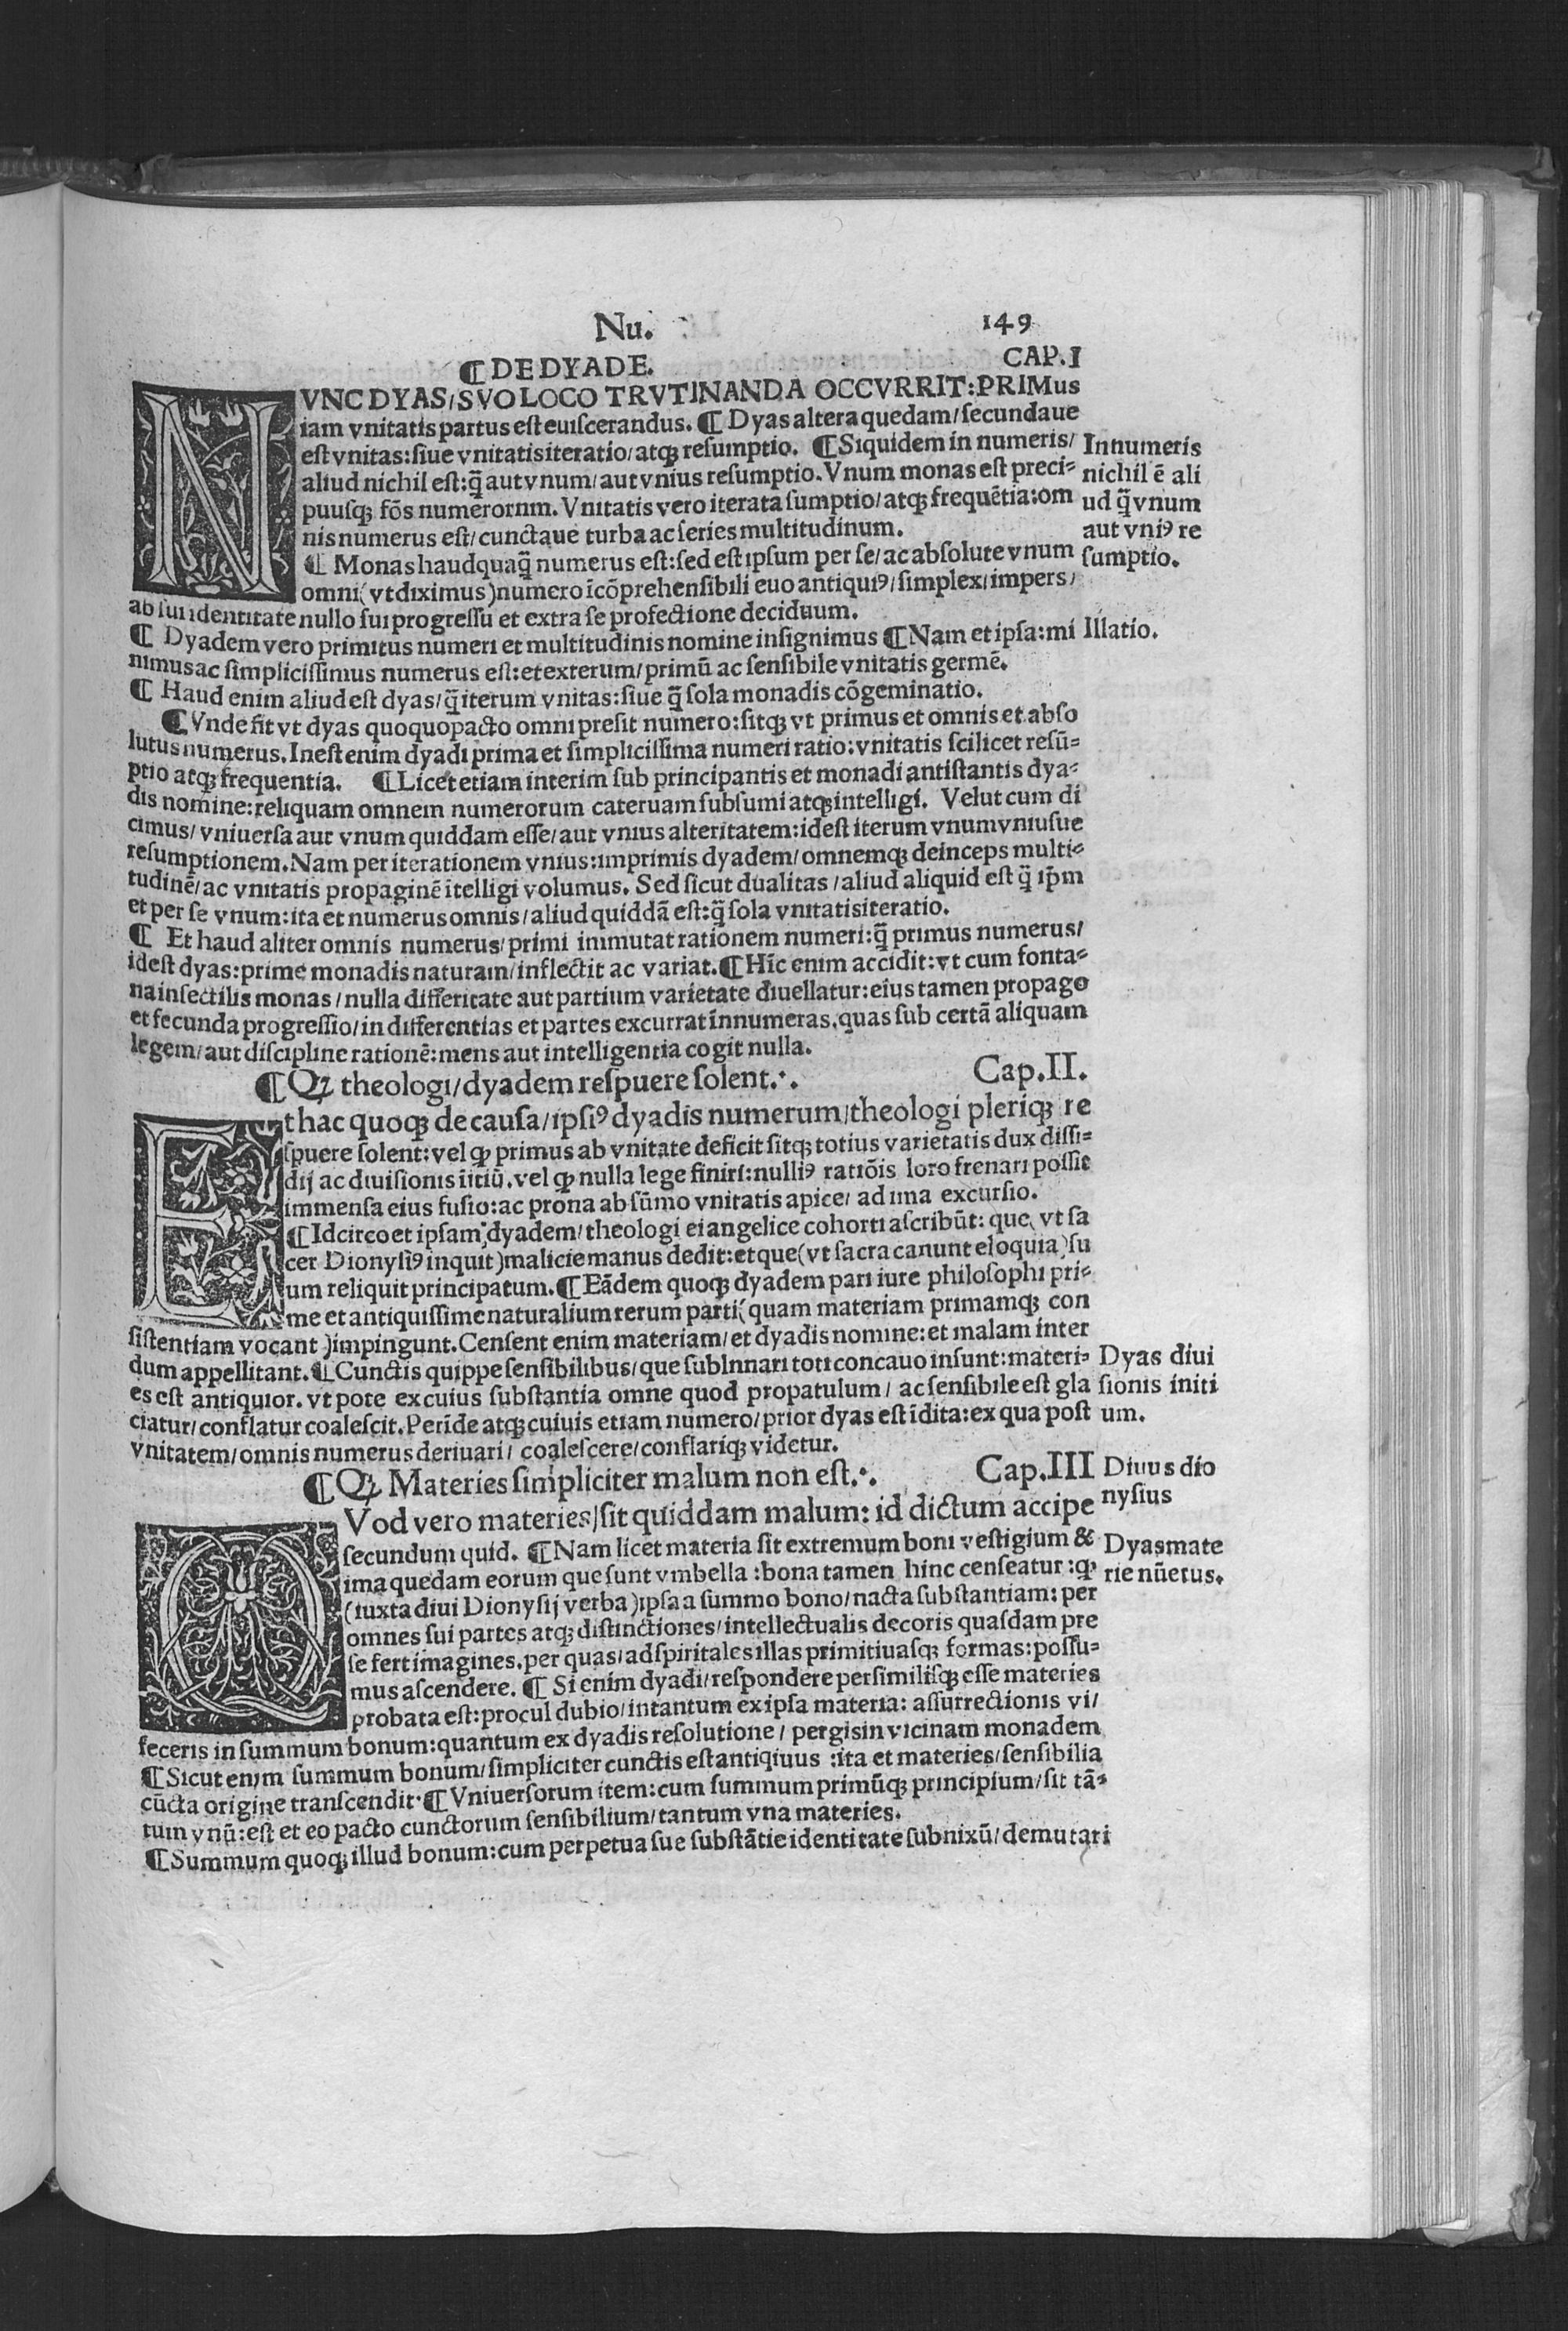 Nu. 149
¶DE DYADE. CAP.I
NVNC DYAS/SVO LOCO TRVTINANDA OCCVRRIT:PRIMus
iam vnitatis partus est euiscerandus. ¶ Dyas altera quedam/secundaue
est vnitas:siue vnitatis iteratio/atqꝫ resumptio. ¶Siquidem in numeris/
aliud nichil est:q̄ aut vnum/aut vnius resumptio. Vnum monas est preci-
puusqꝫ fōs numerornm. Vnitatis vero iterata sumptio/atqꝫ frequētia:om
nis numerus est/cunctaue turba ac series multitudinum.
¶ Monas haudquaq̄ numerus est:sed est ipsum per se/ac absolute vnum
omni(vt diximus)numero īcōprehensibili euo antiquiꝰ/simplex/impers/
ab sui identitate nullo sui progressu et extra se profectione deciduum.
¶ Dyadem vero primitus numeri et multitudinis nomine insignimus ¶Nam et ipsa:mi
nimus ac simplicissimus numerus est:et exterum/primū ac sensibile vnitatis germē.
¶ Haud enim aliud est dyas/q̄ iterum vnitas:siue q̄ sola monadis cōgeminatio.
¶Vnde fit vt dyas quoquopacto omni presit numero:sitqꝫ vt primus et omnis et abso
lutus numerus. Inest enim dyadi prima et simplicissima numeri ratio:vnitatis scilicet resū-
ptio atqꝫ frequentia. ¶Licet etiam interim sub principantis et monadi antistantis dya-
dis nomine:reliquam omnem numerorum cateruam subsumi atqꝫ intelligi. Velut cum di
cimus/vniuersa aut vnum quiddam esse/aut vnius alteritatem:idest iterum vnum vniusue
resumptionem. Nam per iterationem vnius:imprimis dyadem/omnemqꝫ deinceps multi-
tudinē/ac vnitatis propaginē ītelligi volumus. Sed sicut dualitas/aliud aliquid est q̄ ip̄m
et per se vnum:ita et numerus omnis/aliud quiddā est:q̄ sola vnitatis iteratio.
¶ Et haud aliter omnis numerus/primi immutat rationem numeri:q̄ primus numerus/
idest dyas:prime monadis naturam/inflectit ac variat.¶Hīc enim accidit:vt cum fonta-
na insectilis monas/nulla differitate aut partium varietate diuellatur:eius tamen propago
et fecunda progressio/in differentias et partes excurrat īnnumeras.quas sub certā aliquam
legem/aut discipline rationē:mens aut intelligentia cogit nulla.
In numeris
nichil ē ali
ud q̄ vnum
aut vniꝰ re
sumptio.
Illatio.
¶Qꝫ theologi/dyadem respuere solent.·. Cap.II.
Et hac quoqꝫ de causa/ipsiꝰ dyadis numerum/theologi pleriqꝫ re
spuere solent:vel ꝙ primus ab vnitate deficit sitqꝫ totius varietatis dux dissi-
dij ac diuisionis īitiū.vel ꝙ nulla lege finiri:nulliꝰ ratiōis loro frenari possit
immensa eius fusio:ac prona ab sūmo vnitatis apice/ad ima excursio.
¶Idcirco et ipsam dyadem/theologi ei angelice cohorti ascribūt: que(vt sa
cer Dionysiꝰ inquit)malicie manus dedit:et que(vt sacra canunt eloquia)su
um reliquit principatum.¶Eādem quoqꝫ dyadem pari iure philosophi pri-
me et antiquissime naturalium rerum parti(quam materiam primamqꝫ con
sistentiam vocant)impingunt.Censent enim materiam/et dyadis nomine:et malam inter
dum appellitant.¶Cunctis quippe sensibilibus/que sublnnari toti concauo insunt:materi-
es est antiquior.vt pote ex cuius substantia omne quod propatulum/ac sensibile est gla
ciatur/conflatur coalescit.Perīde atqꝫ cuiuis etiam numero/prior dyas est īdita:ex qua post
vnitatem/omnis numerus deriuari/coalescere/conflariqꝫ videtur.
Dyas diui
sionis initi
um.
¶Qꝫ Materies simpliciter malum non est.·. Cap.III
QVod vero materies/sit quiddam malum: id dictum accipe
secundum quid. ¶Nam licet materia sit extremum boni vestigium &
ima quedam eorum que sunt vmbella:bona tamen hinc censeatur:ꝙ
(iuxta diui Dionysij verba)ipsa a summo bono/nacta substantiam: per
omnes sui partes atqꝫ distinctiones/intellectualis decoris quasdam pre
se fert imagines.per quas/ad spiritales illas primitiuasqꝫ formas:possu-
mus ascendere. ¶ Si enim dyadi/respondere persimilisqꝫ esse materies
probata est:procul dubio/intantum ex ipsa materia: assurrectionis vi/
feceris in summum bonum:quantum ex dyadis resolutione/pergis in vicinam monadem
¶Sicut enim summum bonum/simpliciter cunctis est antiqiuus:ita et materies/sensibilia
cūcta origine transcendit.¶Vniuersorum item:cum summum primūqꝫ principium/sit tā-
tum vnū:est et eo pacto cunctorum sensibilium/tantum vna materies.
¶Summum quoqꝫ illud bonum:cum perpetua sue substātie identitate subnixū/demutari
Diuus dio
nysius
Dyas mate
rie nūerus.